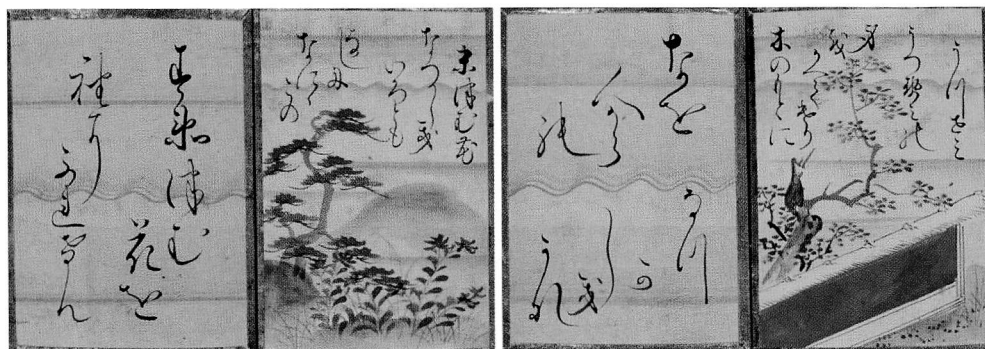 うつせみ
うつせみの
身
を
かへてける
木のもとに
なを
人から
の
なつ
か
しき
かな
末つむ花
なつかしき
いろとも
なしに
なにに
この
すゑつむ
花を
袖に
ふれけん